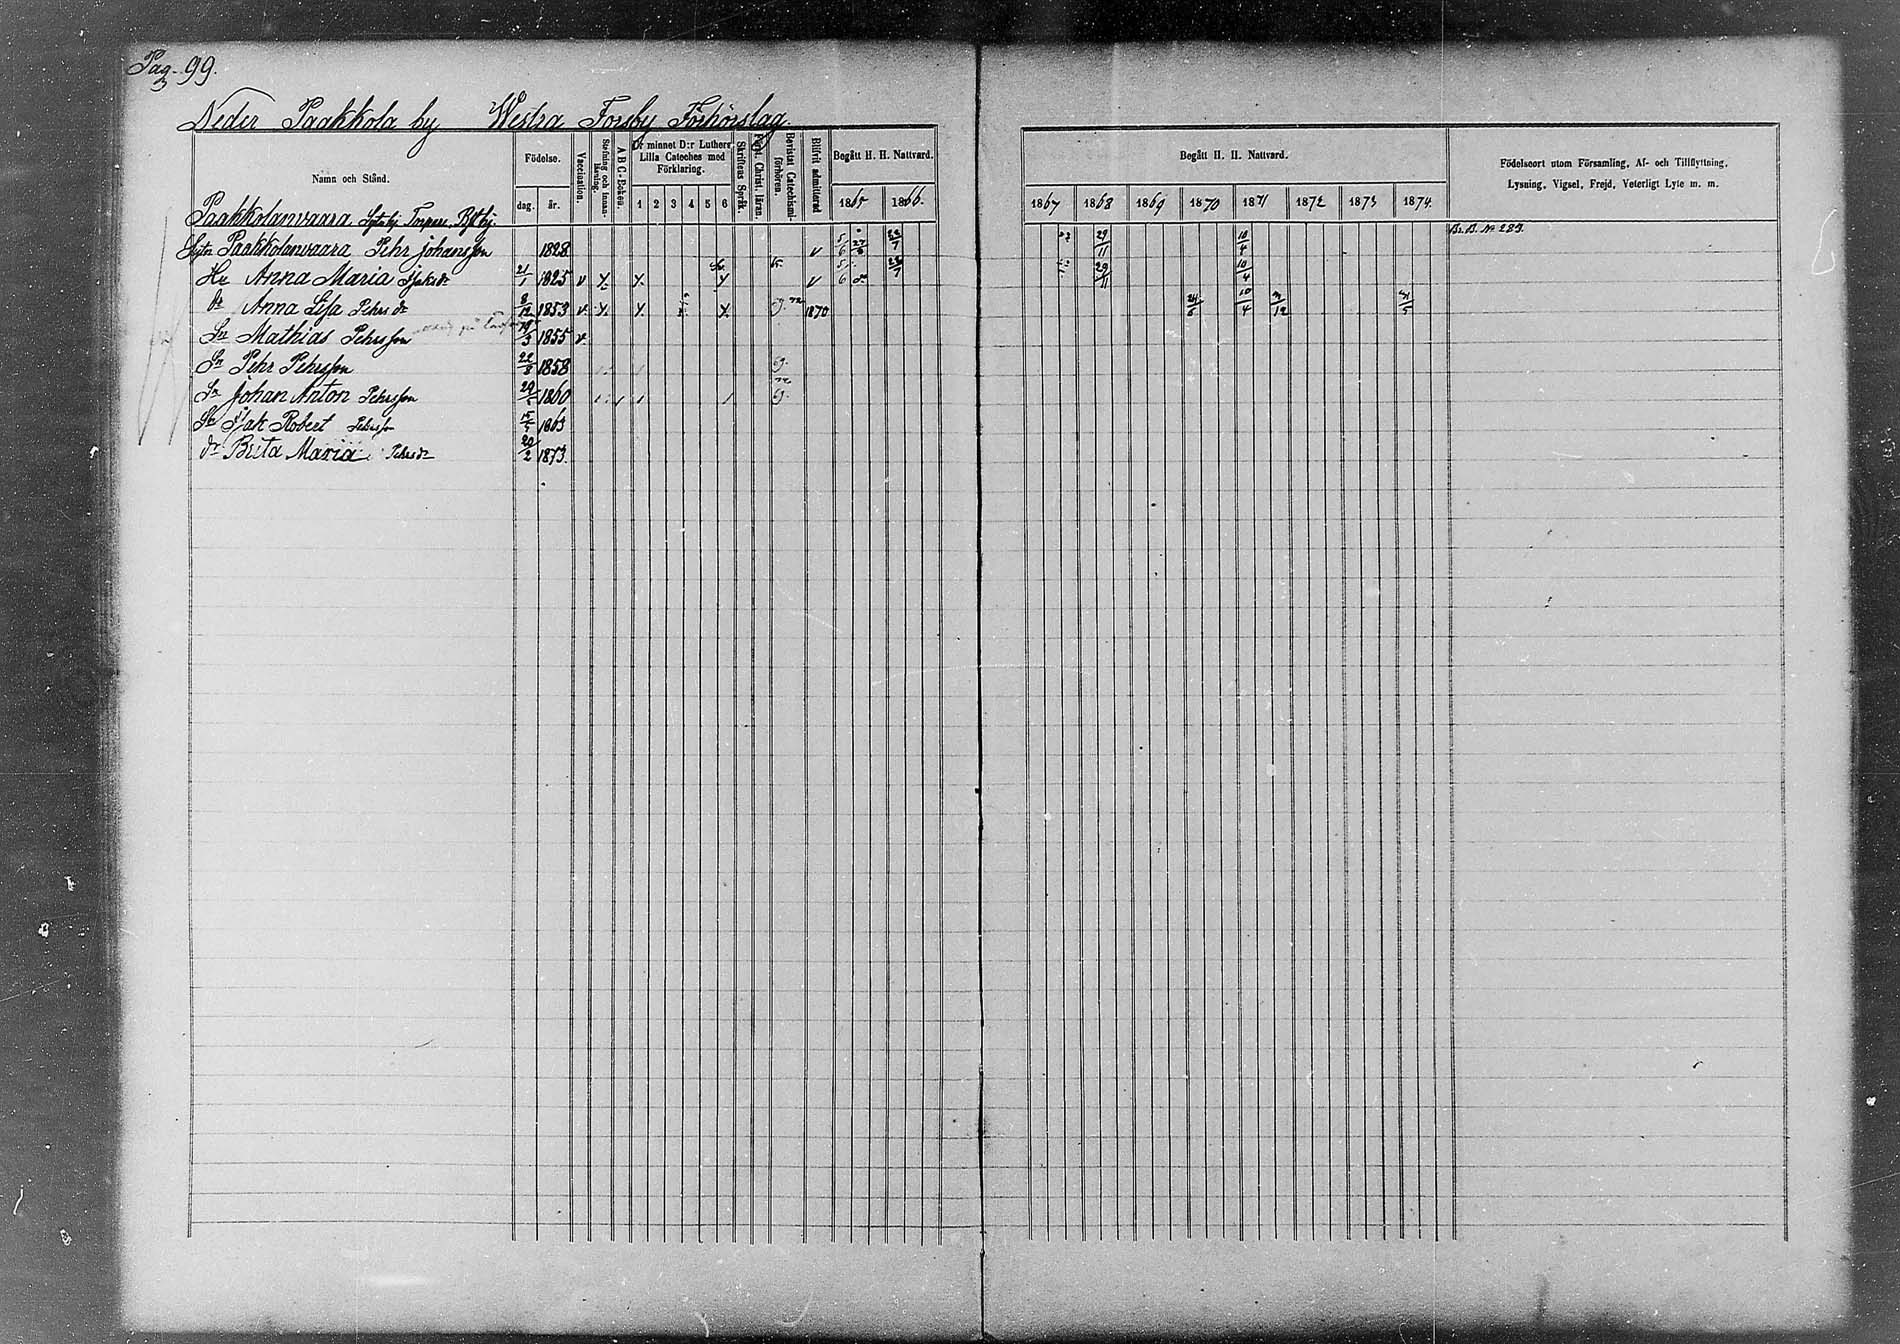 Pag. 99.
Neder Paakkola by Westra Forsby Förhörslag.
Namn och Stånd.
Födelse.
dag. år.
Vaccination.
Stafning och innan-läsning.
A B C-Boken.
Ur minnet D:r Luthers Lilla Cateches med Förklaring.
1 2 3 4 5 6
Skriftens Språk.
Förkl. Christ. läran.
Bevistat Catechismi-förhören.
Blifvit admitterad
Begått H. H. Nattvard.
1865 1866.
Begått H. H. Nattvard.
1867 1868 1869 1870 1871 1872 1873 1874.
Födelseort utom Församling, Af- och Tillflyttning,
Lysning, Vigsel, Frejd, Veterligt Lyte m. m.
Paakkolanvaara
Br. B. Nº 289.
Paakkolanvaara Pehr Johansson 1828 v 5/6 27/8 22/7 29/11 10/4
Hu Anna Maria 21/1 1825 v 5/6 22/7 29/11 10/4
dr Anna Lisa Pehrs dr 8/12 1853 v 1870 24/6 10/4 /12 /5
Sn Mathias Pehrsson 19/3 1855 v
Sn Pehr Pehrsson 22/8 1858
Sn Johan Anton Pehrsson 29/ 1860
Sn Isak Robert Pehrsson 1863
dr Brita Maria Pehrsdr 20/2 1873.